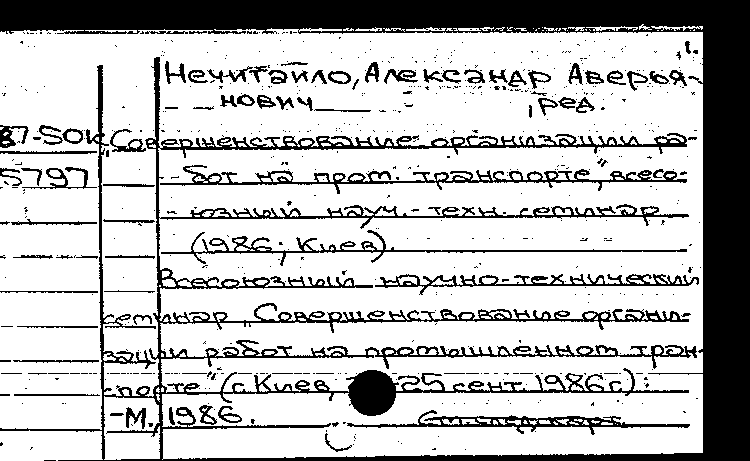 1.
Нечитайло, Александр Аверья-
нович , ред.
87-50К „Совершенствование организации ра-
5797 бот на пром. транспорте", всесо-
юзный науч.-техн. семинар
(1986; Киев).
Всесоюзный научно-технический
семинар „Совершенствование органи-
зации работ на промышленном тран-
спорте" (г. Киев, 25 сент. 1986 г.):
-М., 1986. См. след. карт.